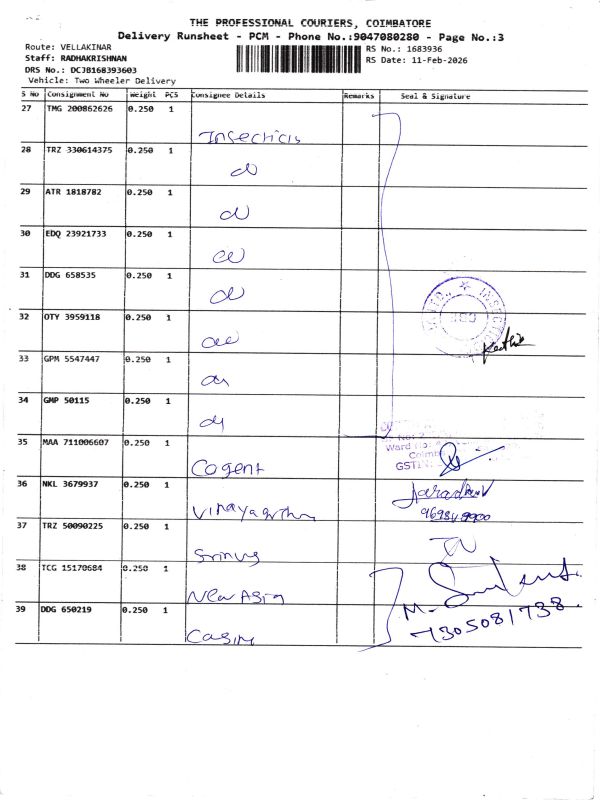 THE PROFESSIONAL COURIERS, COIMBATORE
Delivery Runsheet - PCM - Phone No.:9047080280 - Page No.:3
Route: VELLAKINAR
RS No.: 1683936
Staff: RADHAKRISHNAN
RS Date: 11-Feb-2026
DRS No.: DCJB168393603
Vehicle: Two Wheeler Delivery
S No Consignment No Weight PCS Consignee Details Remarks Seal & Signature
27 TMG 200862626 0.250 1
28 TRZ 330614375 0.250 1
29 ATR 1818782 0.250 1
30 EDQ 23921733 0.250 1
31 DDG 658535 0.250 1
32 OTY 3959118 0.250 1
33 GPM 5547447 0.250 1
34 GMP 50115 0.250 1
35 MAA 711006607 0.250 1
Ward No:
GSTIN:
Cogent
36 NKL 3679937 0.250 1
37 TRZ 50090225 0.250 1
38 TCG 15170684 0.250 1
New Asia
39 DDG 650219 0.250 1
7305081738